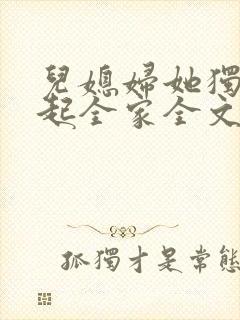 兒媳婦她獨
起全家全文
孤獨才是常態